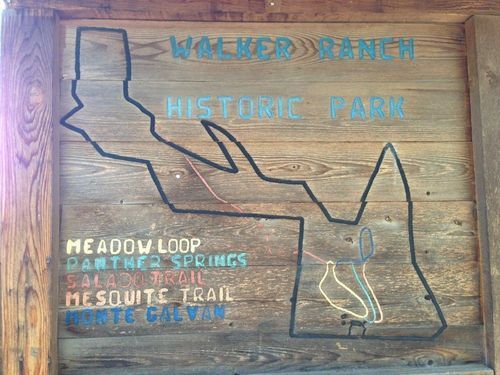 WALKER RANCH
HISTORIC PARK
MEADOW LOOP
PANTHER SPRINGS
SALADO TRAIL
MESQUITE TRAIL
MONTE GALVAN